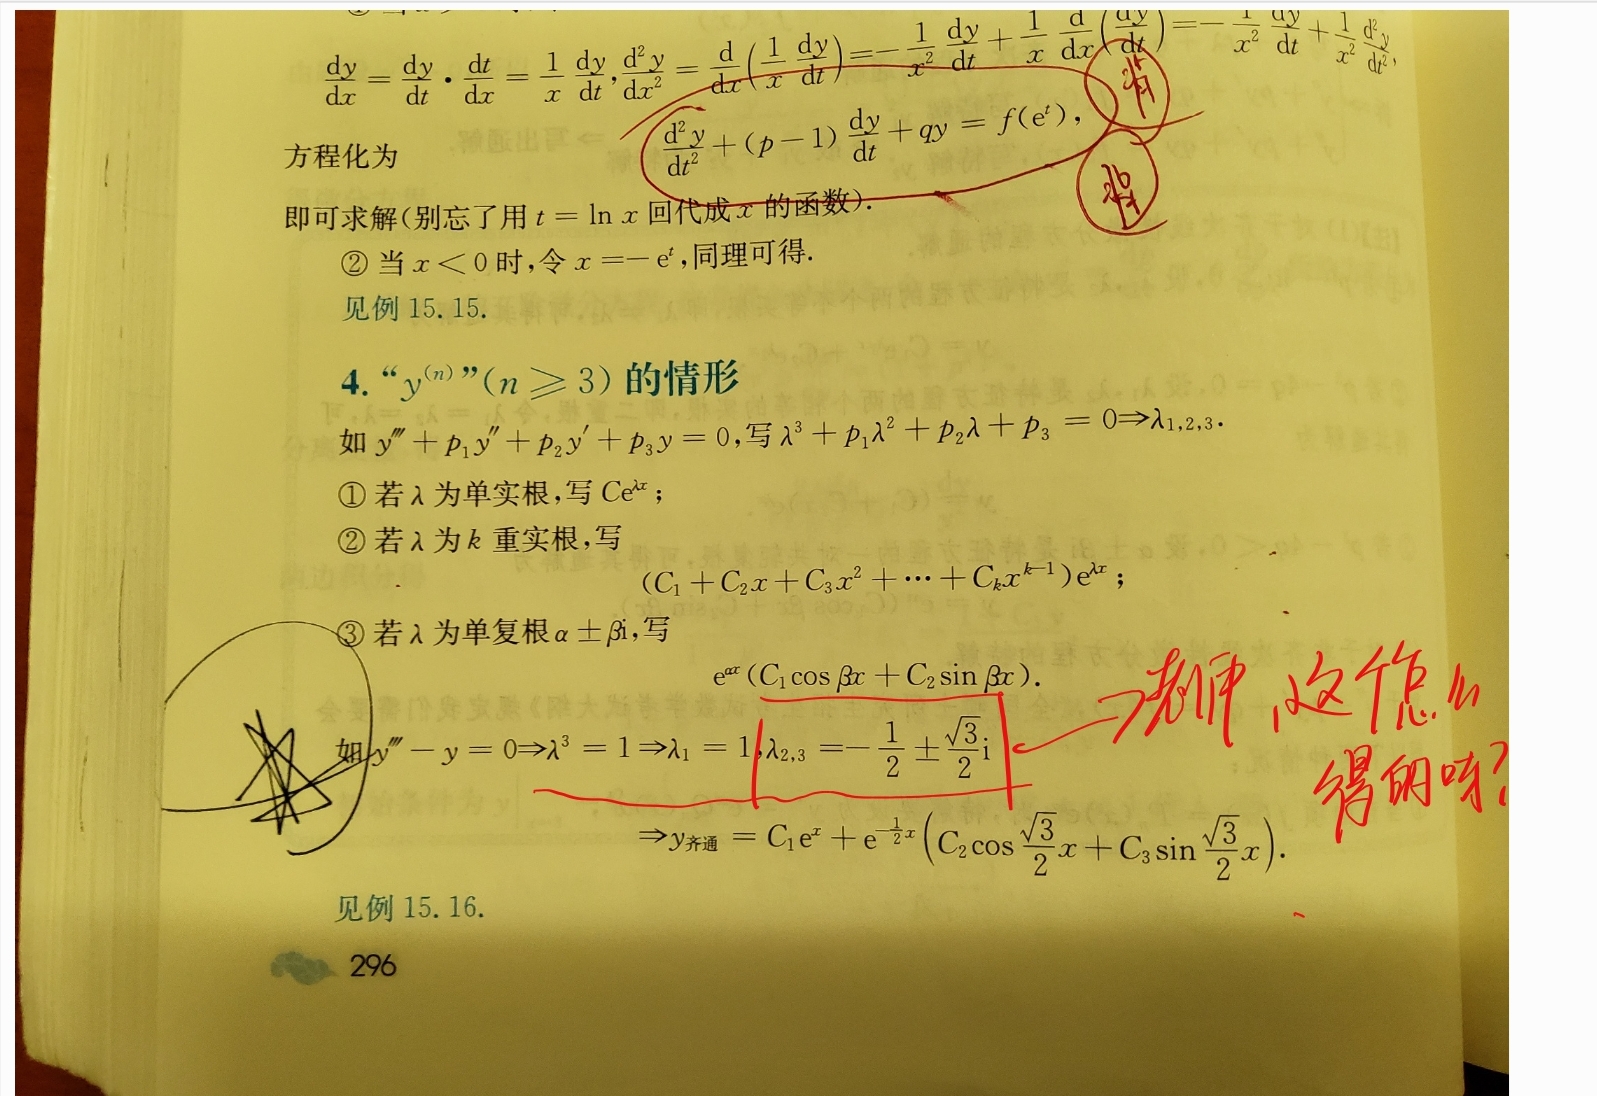 dy/dx = dy/dt · dt/dx = 1/x dy/dt, d²y/dx² = d/dx (1/x dy/dt) = − 1/x² dy/dt + 1/x d/dx (dy/dt) = − 1/x² dy/dt + 1/x² d²y/dt²,
方程化为
d²y/dt² + (p − 1) dy/dt + qy = f(eᵗ),
即可求解(别忘了用 t = ln x 回代成 x 的函数).
② 当 x < 0 时,令 x = − eᵗ,同理可得.
见例 15.15.
4. “y⁽ⁿ⁾”(n ⩾ 3) 的情形
如 y‴ + p₁y″ + p₂y′ + p₃y = 0,写 λ³ + p₁λ² + p₂λ + p₃ = 0⇒λ₁,₂,₃.
① 若 λ 为单实根,写 Ce^{λx};
② 若 λ 为 k 重实根,写
(C₁ + C₂x + C₃x² + ⋯ + Cₖx^{k−1})e^{λx};
③ 若 λ 为单复根 α ± βi,写
e^{αx}(C₁cos βx + C₂sin βx).
如 y‴ − y = 0⇒λ³ = 1⇒λ₁ = 1,λ₂,₃ = − 1/2 ± √3/2 i
→老师,这个怎么
得的呀?
⇒y齐通 = C₁eˣ + e^{−1/2 x}(C₂cos √3/2 x + C₃sin √3/2 x).
见例 15.16.
296